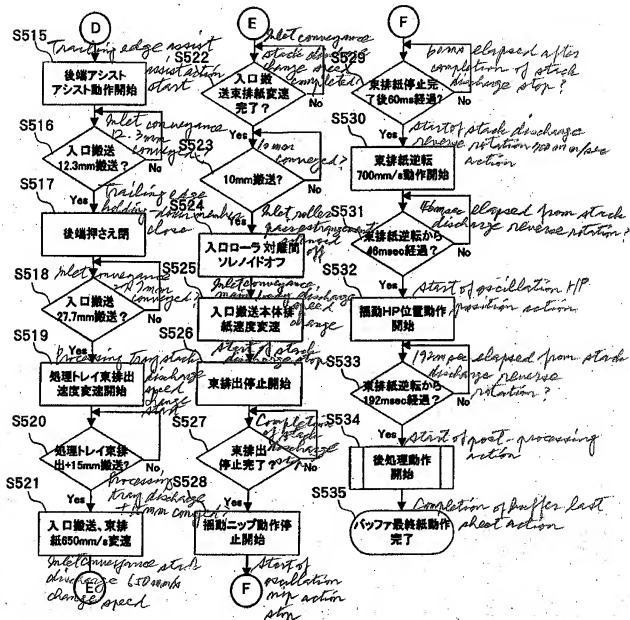 D
S515
Trailing edge assist
assist action
start
後端アシスト
アシスト動作開始
S516
Inlet conveyance
12.3mm
conveyed?
入口搬送
12.3mm搬送?
Yes
No
S517
Trailing edge
holding down member
close
後端押さえ閉
S518
Inlet conveyance
27.7mm
conveyed?
入口搬送
27.7mm搬送?
Yes
No
S519
Processing tray stack
discharge
speed
change
start
処理トレイ束排出
速度変速開始
S520
処理トレイ束排
出+15mm搬送?
No
Yes
Processing
tray discharge
S521
入口搬送、束排
紙650mm/s変速
Inlet conveyance stack
discharge 650mm/s
change speed
E
E
S522
Inlet conveyance
stack discharge
change speed
completed?
入口搬
送束排紙変速
完了?
Yes
No
S523
10mm
conveyed?
10mm搬送?
Yes
No
S524
Inlet roller
off
入口ローラ対離間
ソレノイドオフ
S525
Inlet conveyance,
main body discharge
speed
change
入口搬送本体排
紙速度変速
S526
Start of stack
discharge stop
束排出停止開始
S527
Completion
of stack
discharge
stop?
束排出
停止完了?
Yes
No
S528
揺動ニップ動作停
止開始
Start of
oscillation
nip action
stop
F
F
S529
60ms elapsed after
completion of stack
discharge stop?
束排紙停止完
了後60ms経過?
Yes
No
S530
start of stack discharge
reverse rotation 700mm/sec
action
束排紙逆転
700mm/s動作開始
S531
46msec elapsed from stack
discharge reverse rotation?
束排紙逆転から
46msec経過?
Yes
No
S532
start of oscillation HP
position action
揺動HP位置動作
開始
S533
192msec elapsed from stack
discharge reverse
rotation?
束排紙逆転から
192msec経過?
Yes
No
S534
start of post-processing
action
後処理動作
開始
S535
Completion of buffer last
sheet action
バッファ最終紙動作
完了